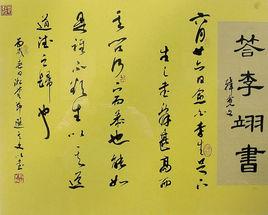 答李翊書
韓愈文
六月廿六日愈白李生足下
生之書辭甚高而
其問何下而恭也能如
是誰不欲告生以其道
道德之歸也
丙戌春日